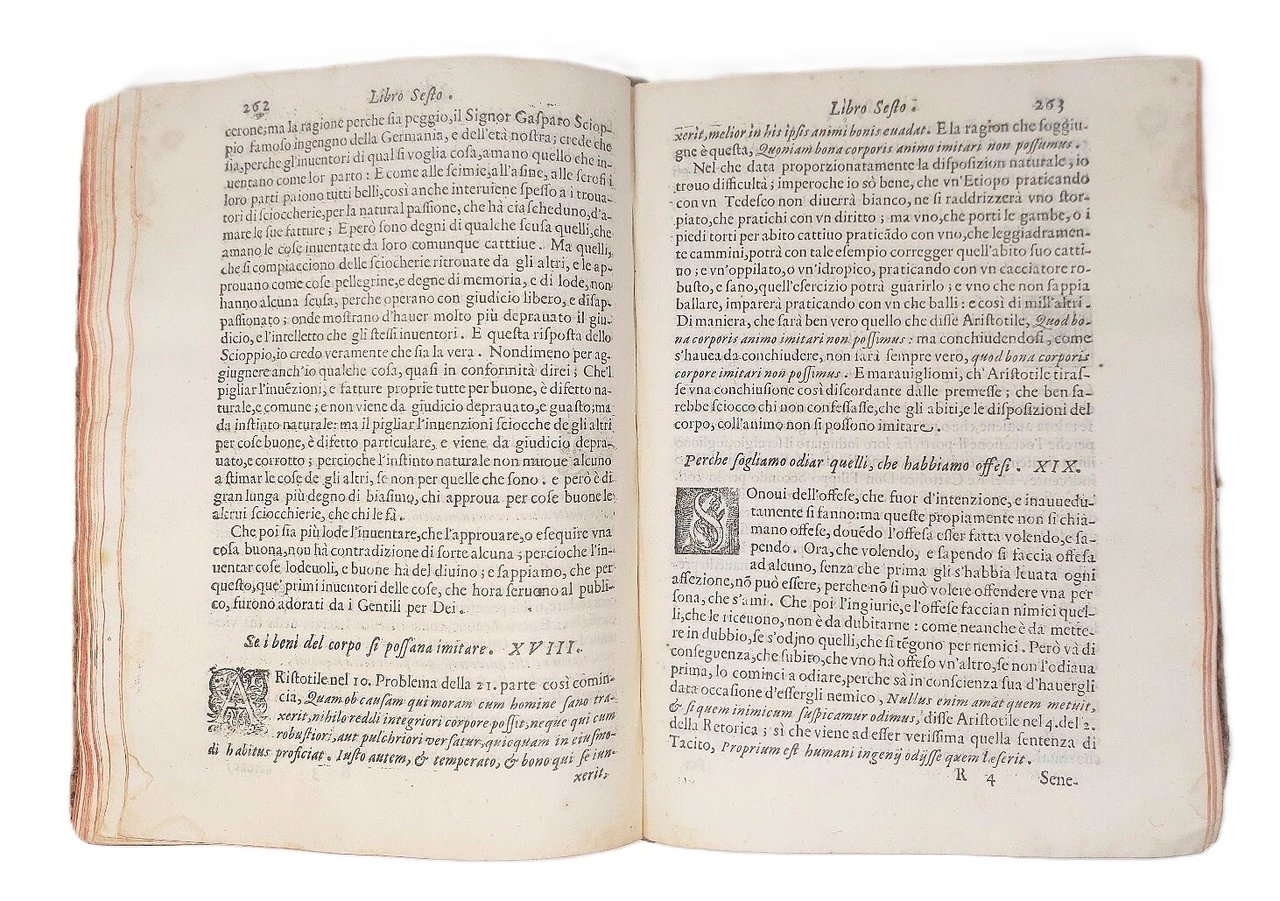 262
Libro Sesto.
cerone; ma la ragione perche sia peggio, il Signor Gasparo Sciop-
pio famoso ingengno della Germania, e dell'età nostra; crede che
sia, perche gl'inuentori di qual si voglia cosa, amano quello che in-
uentano come lor parto: E come alle scimie, all'asine, alle scrofi i
loro parti paiono tutti belli, così anche interuiene spesso a i troua-
tori di sciocherie, per la natural passione, che hà ciascheduno, d'a-
mare le sue fatture; E però sono degni di qualche scusa quelli, che
amano le cose inuentate da loro comunque catttiue. Ma quelli,
che si compiacciono delle sciocherie ritrouate da gli altri, e le ap-
prouano come cose pellegrine, e degne di memoria, e di lode, non
hanno alcuna scusa, perche operano con giudicio libero, e disap-
passionato; onde mostrano d'hauer molto più deprauato il giu-
dicio, e l'intelletto che gli stessi inuentori. E questa risposta dello
Scioppio, io credo veramente che sia la vera. Nondimeno per ag-
giugnere anch'io qualche cosa, quasi in conformità direi; Che'l
pigliar l'inuēzioni, e fatture proprie tutte per buone, è difetto na-
turale, e comune; e non viene da giudicio deprauato, e guasto; ma
da instinto naturale: ma il pigliar l'inuenzioni sciocche de gli altri
per cose buone, è difetto particulare, e viene da giudicio depra-
uato, e corrotto; percioche l'instinto naturale non muoue alcuno
a stimar le cose de gli altri, se non per quelle che sono. e però è di
gran lunga più degno di biasimo, chi approua per cose buone le
altrui sciocchierie, che chi le fà.
Che poi sia più lode l'inuentare, che l'approuare, o esequire vna
cosa buona, nou hà contradizione di sorte alcuna; percioche l'in-
uentar cose lodeuoli, e buone hà del diuino; e sappiamo, che per
questo, que' primi inuentori delle cose, che hora seruono al publi-
co, furono adorati da i Gentili per Dei.
Se i beni del corpo si possana imitare. XVIII.
ARistotile nel 10. Problema della 21. parte così comin-
cia, Quam ob causam qui moram cum homine sano tra-
xerit, nihilo reddi integriori corpore possit, neque qui cum
robustiori, aut pulchriori versatur, quioquam in eiusmo-
di habitus proficiat. Iusto autem, & temperato, & bono qui se iun-
xerit,
Libro Sesto.
263
xerit, melior in his ipsis animi bonis euadat. E la ragion che soggiu-
gne è questa, Quoniam bona corporis animo imitari non possumus.
Nel che data proporzionatamente la disposizion naturale, io
trouo difficultà; imperoche io sò bene, che vn'Etiopo praticando
con vn Tedesco non diuerrà bianco, ne si raddrizzerà vno stor-
piato, che pratichi con vn diritto; ma vno, che porti le gambe, o i
piedi torti per abito cattiuo praticādo con vno, che leggiadramen-
te cammini, potrà con tale esempio corregger quell'abito suo catti-
uo; e vn'oppilato, o vn'idropico, praticando con vn cacciatore ro-
busto, e sano, quell'esercizio potrà guarirlo; e vno che non sappia
ballare, imparerà praticando con vn che balli: e così di mill'altri.
Di maniera, che sarà ben vero quello che disse Aristotile, Quod bo-
na corporis animo imitari non possimus: ma conchiudendosi, come
s'hauea da conchiudere, non sarà sempre vero, quod bona corporis
corpore imitari non possimus. E marauigliomi, ch'Aristotile tiras-
se vna conchiusione così discordante dalle premesse; che ben sa-
rebbe sciocco chi non confessasse, che gli abiti, e le disposizioni del
corpo, coll'animo non si possono imitare.
Perche sogliamo odiar quelli, che habbiamo offesi. XIX.
SOnoui dell'offese, che fuor d'intenzione, e inauuedu-
tamente si fanno: ma queste propiamente non si chia-
mano offese, douēdo l'offesa esser fatta volendo, e sa-
pendo. Ora, che volendo, e sapendo si faccia offesa
ad alcuno, senza che prima gli s'habbia leuata ogni
affezione, nō può essere, perche nō si può volere offendere vna per
sona, che s'ami. Che poi l'ingiurie, e l'offese faccian nimici quel-
li, che le riceuono, non è da dubitarne: come neanche è da mette-
re in dubbio, se s'odino quelli, che si tēgono per nemici. Però và di
conseguenza, che subito, che vno hà offeso vn'altro, se non l'odiaua
prima, lo cominci a odiare, perche sà in conscienza sua d'hauergli
data occasione d'essergli nemico, Nullus enim amat quem metuit,
& si quem inimicum suspicamur odimus, disse Aristotile nel 4. del 2.
della Retorica; sì che viene ad esser verissima quella sentenza di
Tacito, Proprium est humani ingenij odijsse quem læserit.
R 4 Sene-